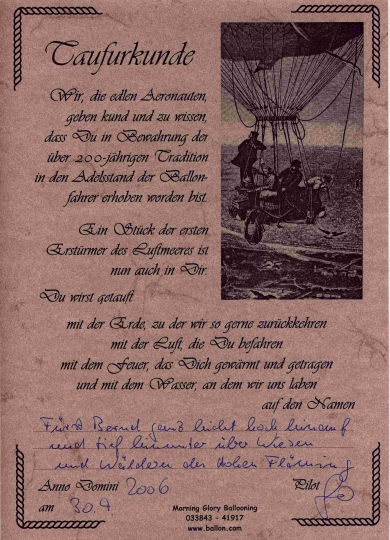 Taufurkunde
Wir, die edlen Aeronauten,
geben kund und zu wissen,
dass Du in Bewahrung der
über 200-jährigen Tradition
in den Adelsstand der Ballon-
fahrer erhoben worden bist.
Ein Stück der ersten
Erstürmer des Luftmeeres ist
nun auch in Dir.
Du wirst getauft
mit der Erde, zu der wir so gerne zurückkehren
mit der Luft, die Du befahren
mit dem Feuer, das Dich gewärmt und getragen
und mit dem Wasser, an dem wir uns laben
auf den Namen
Fürst Bernd ganz leicht hoch hinauf
und tief hinunter über Wiesen
und Wälder des Hohen Fläming
Anno Domini 2006 Pilot
am 30.9
Morning Glory Ballooning
033843 - 41917
www.ballon.com